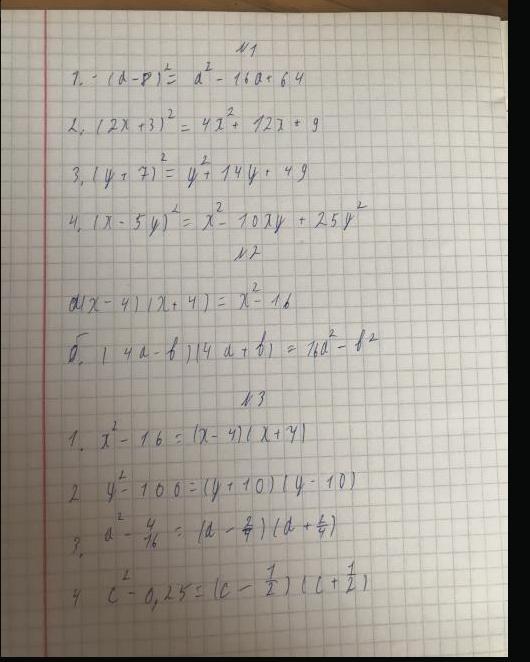 №1
1. (a-8)² = a² - 16a + 64
2, (2x+3)² = 4x² + 12x + 9
3, (y+7)² = y² + 14y + 49
4, (x-5y)² = x² - 10xy + 25y²
№2
а(x-4)(x+4) = x² - 16
б, (4a-b)(4a+b) = 16a² - b²
№3
1. x² - 16 = (x-4)(x+4)
2 y² - 100 = (y+10)(y-10)
3, a² - 4/16 = (a - 2/4)(a + 2/4)
4 c² - 0,25 = (c - 1/2)(c + 1/2)